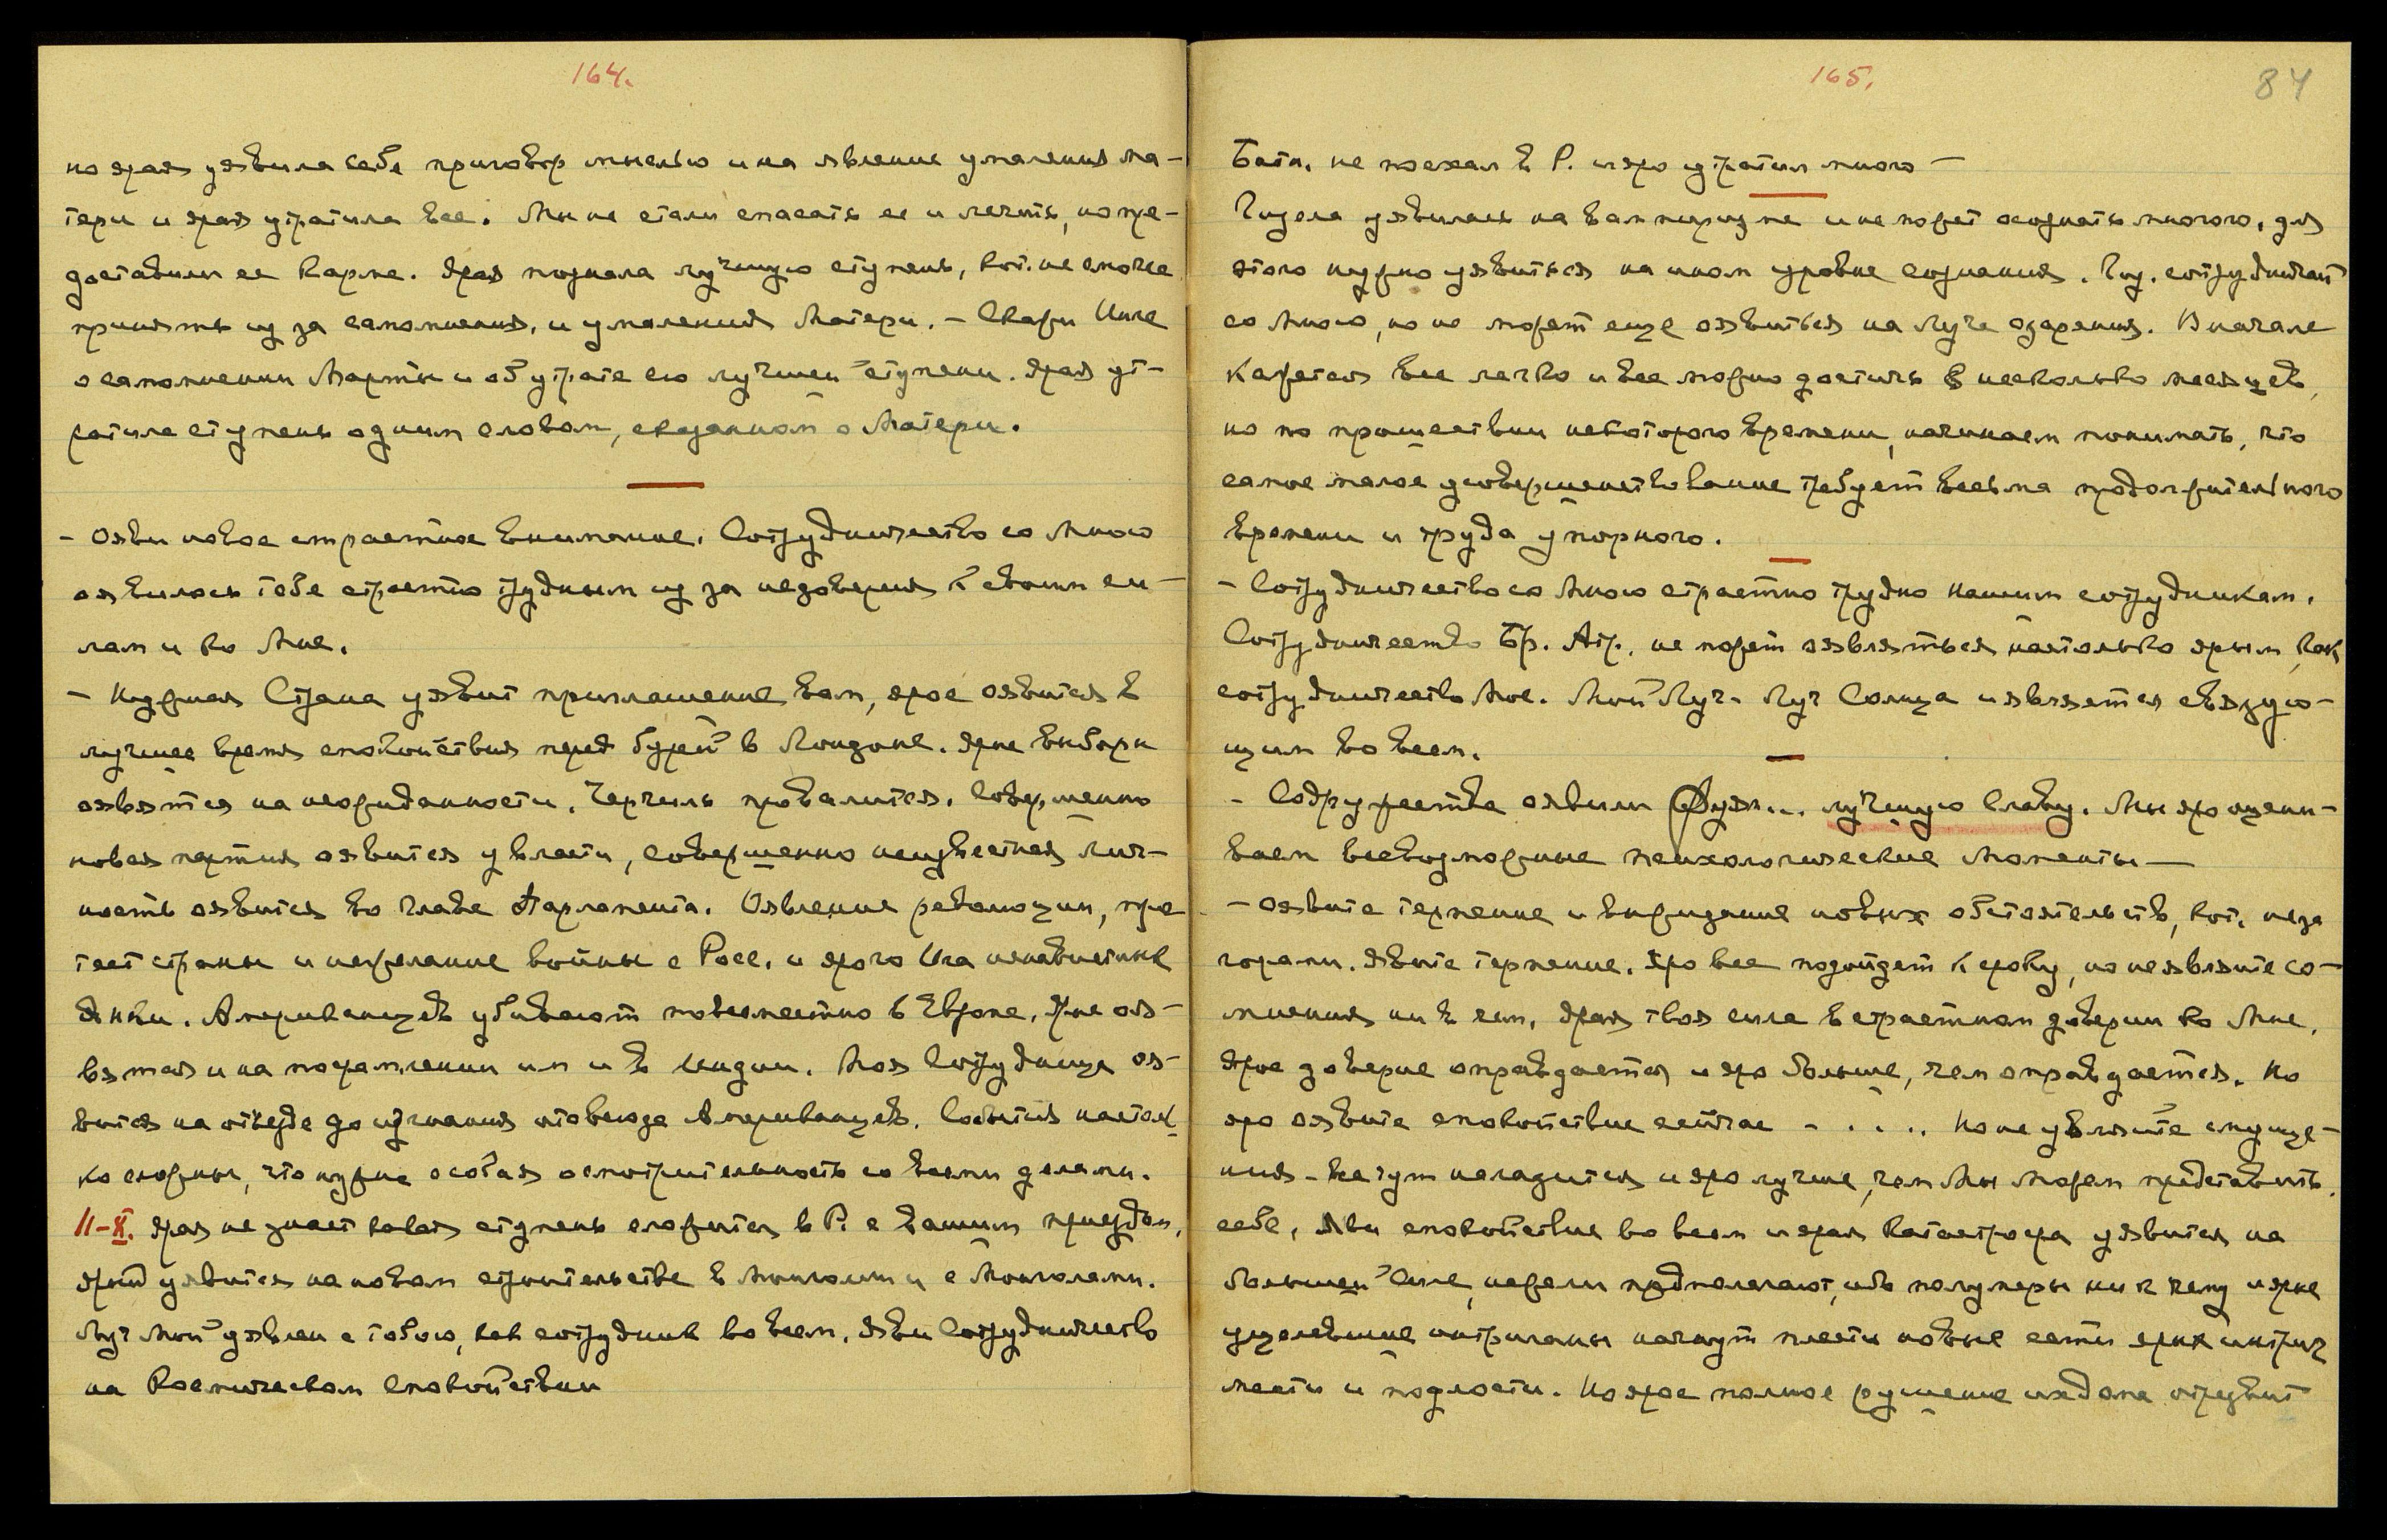 164.
но ярая уявила себе приговор мыслью и на явление умаления Ма-
тери и ярая утратила все. Мы не стали спасать ее и лечить, но пре-
доставили ее Карме. Ярая познала лучшую ступень, кот. не сможе
принять из за самомнения, и умаления Матери. - Скажи Инге
о самомнении Марты и об утрате ею лучшей ступени. Ярая ут-
ратила ступень одним словом, сказанном о Матери.
- Ояви новое страстное внимание. Сотрудничество со Мною
оявилось тебе страстно трудным из за недоверия к своим си-
лам и ко Мне.
- Нужная Страна уявит приглашение вам, ярое оявится в
лучшее время спокойствия перед бурей в Лондоне. Ярые выборы
оявятся на неожиданности. Черчиль провалится. Совершенно
новая партия оявится у власти, совершенно неизвестная лич-
ность оявится во главе Парламента. Оявление революции, про
тест страны и нежелание войны с Росс. и ярого Ига ненавистных
Янки. Американцев убивают повсеместно в Европе. Ярые оя-
вятся и на посрамлении им и в Индии. Моя Сотрудница оя-
вится на отъезде до изгнания отовсюда Американцев. События настол-
ко сложны, что нужна особая осмотрительность со всеми делами.
11-X. Ярая не знает какая ступень сложится в Р. с вашим приездом,
ярый уявится на новом строительстве в Монголии и с Монголами.
Луч Мой уявлен с тобою, как сотрудник во всем. Яви Сотрудничество
на Космическом Спокойствии
165.
84
Бати. не поехал в Р. и яро утратил много -
Гизела уявилась на вампиризме и не может осознать многого, для
этого нужно уявиться на ином уровне сознания. Гиз. сотрудничает
со Мною, но не может еще оявиться на Луче озарения. Вначале
кажется все легко и все можно достичь в несколько месяцев,
но по прошествии некоторого времени, начинаем понимать, что
самое малое усовершенствование требует весьма продолжительного
времени и труда упорного.
- Сотрудничество со Мною страстно трудно нашим сотрудникам.
Сотрудничество Бр. Атр. не может оявляться настолько ярым, как
сотрудничество Мое. Мой Луч - Луч Солнца и является связую-
щим во всем.
- Содружества оявили Фуян... лучшую Славу. Мы яро оцени-
ваем всевозможные психологические моменты -
- Оявите терпение и выжидание новых обстоятельств, кот. не за
горами. Явите терпение. Яро все подойдет к сроку, но не являйте со-
мнения ни в чем. Ярая твоя сила в страстном доверии ко Мне.
Ярое доверие оправдается и яро больше, чем оправдается. Но
яро оявите спокойствие сейчас - . . . . Но не уявляйте смуще-
ния - все тут наладится и яро лучше, чем Мы можем представить
себе. Яви спокойствие во всем и ярая катастрофа уявится на
большей Силе, нежели предполагают, ибо полумеры ни к чему и ярые
уцелевшие интриганы начнут плести новые сети ярых интриг
мести и подлости. Но ярое полное рушение их дома отрезвит